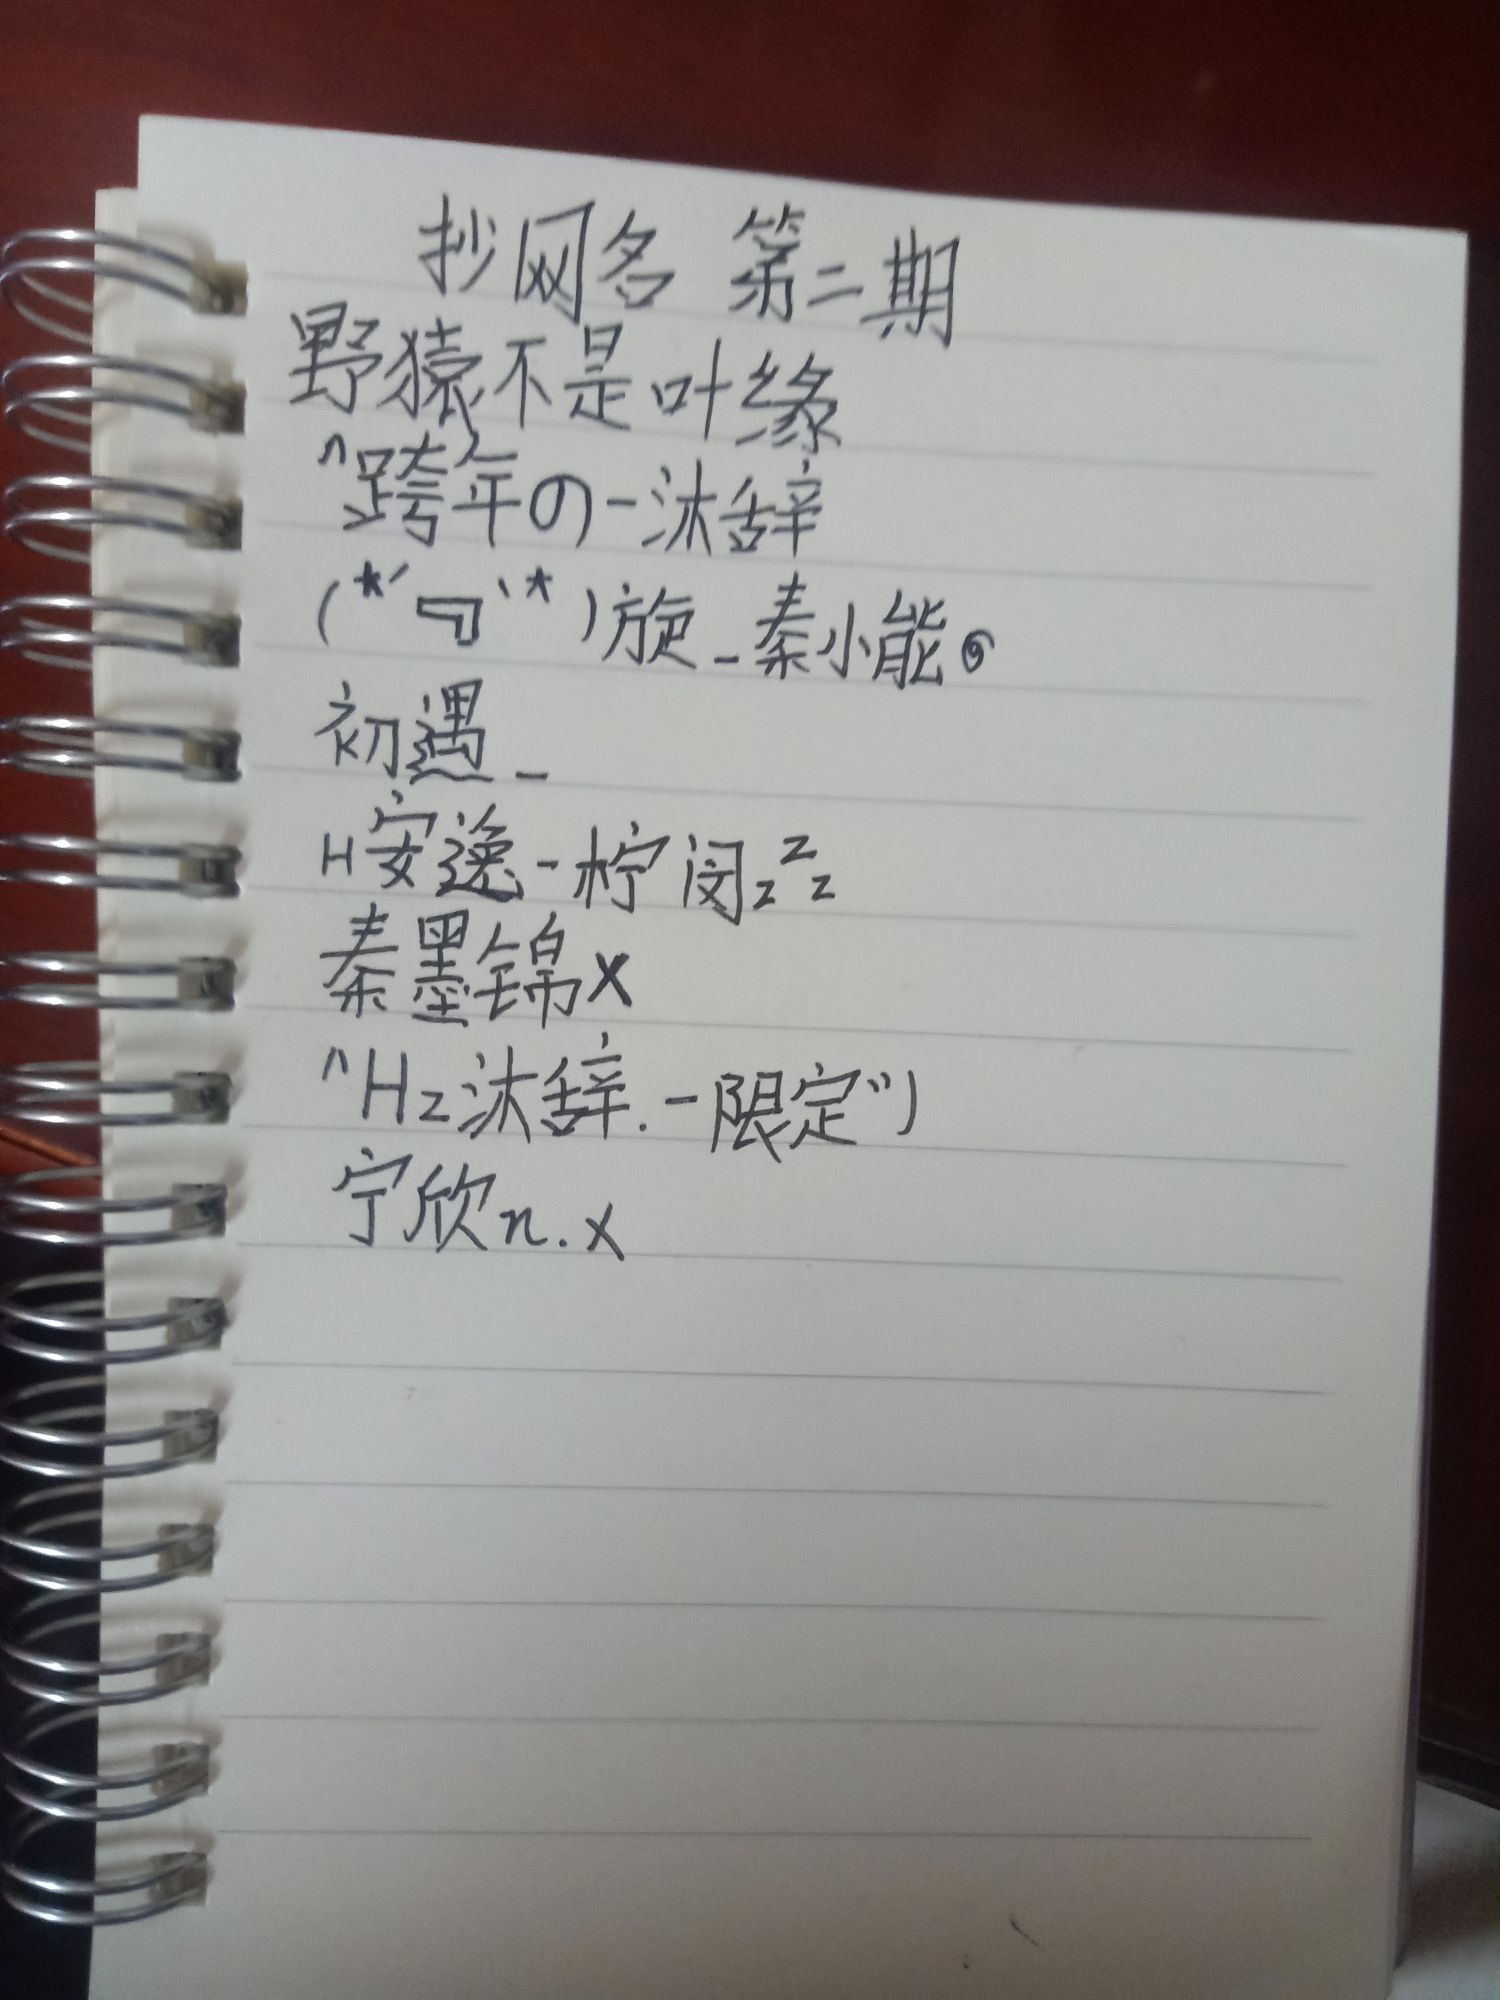 抄网名 第二期
野猿不是叶缘
^跨年の-沐辞
(*′ㄱ‵*)旋_秦小能๑
初遇_
H安逸-柠闵zZz
秦墨锦x
^Hz沐辞.-限定")
宁欣n.x